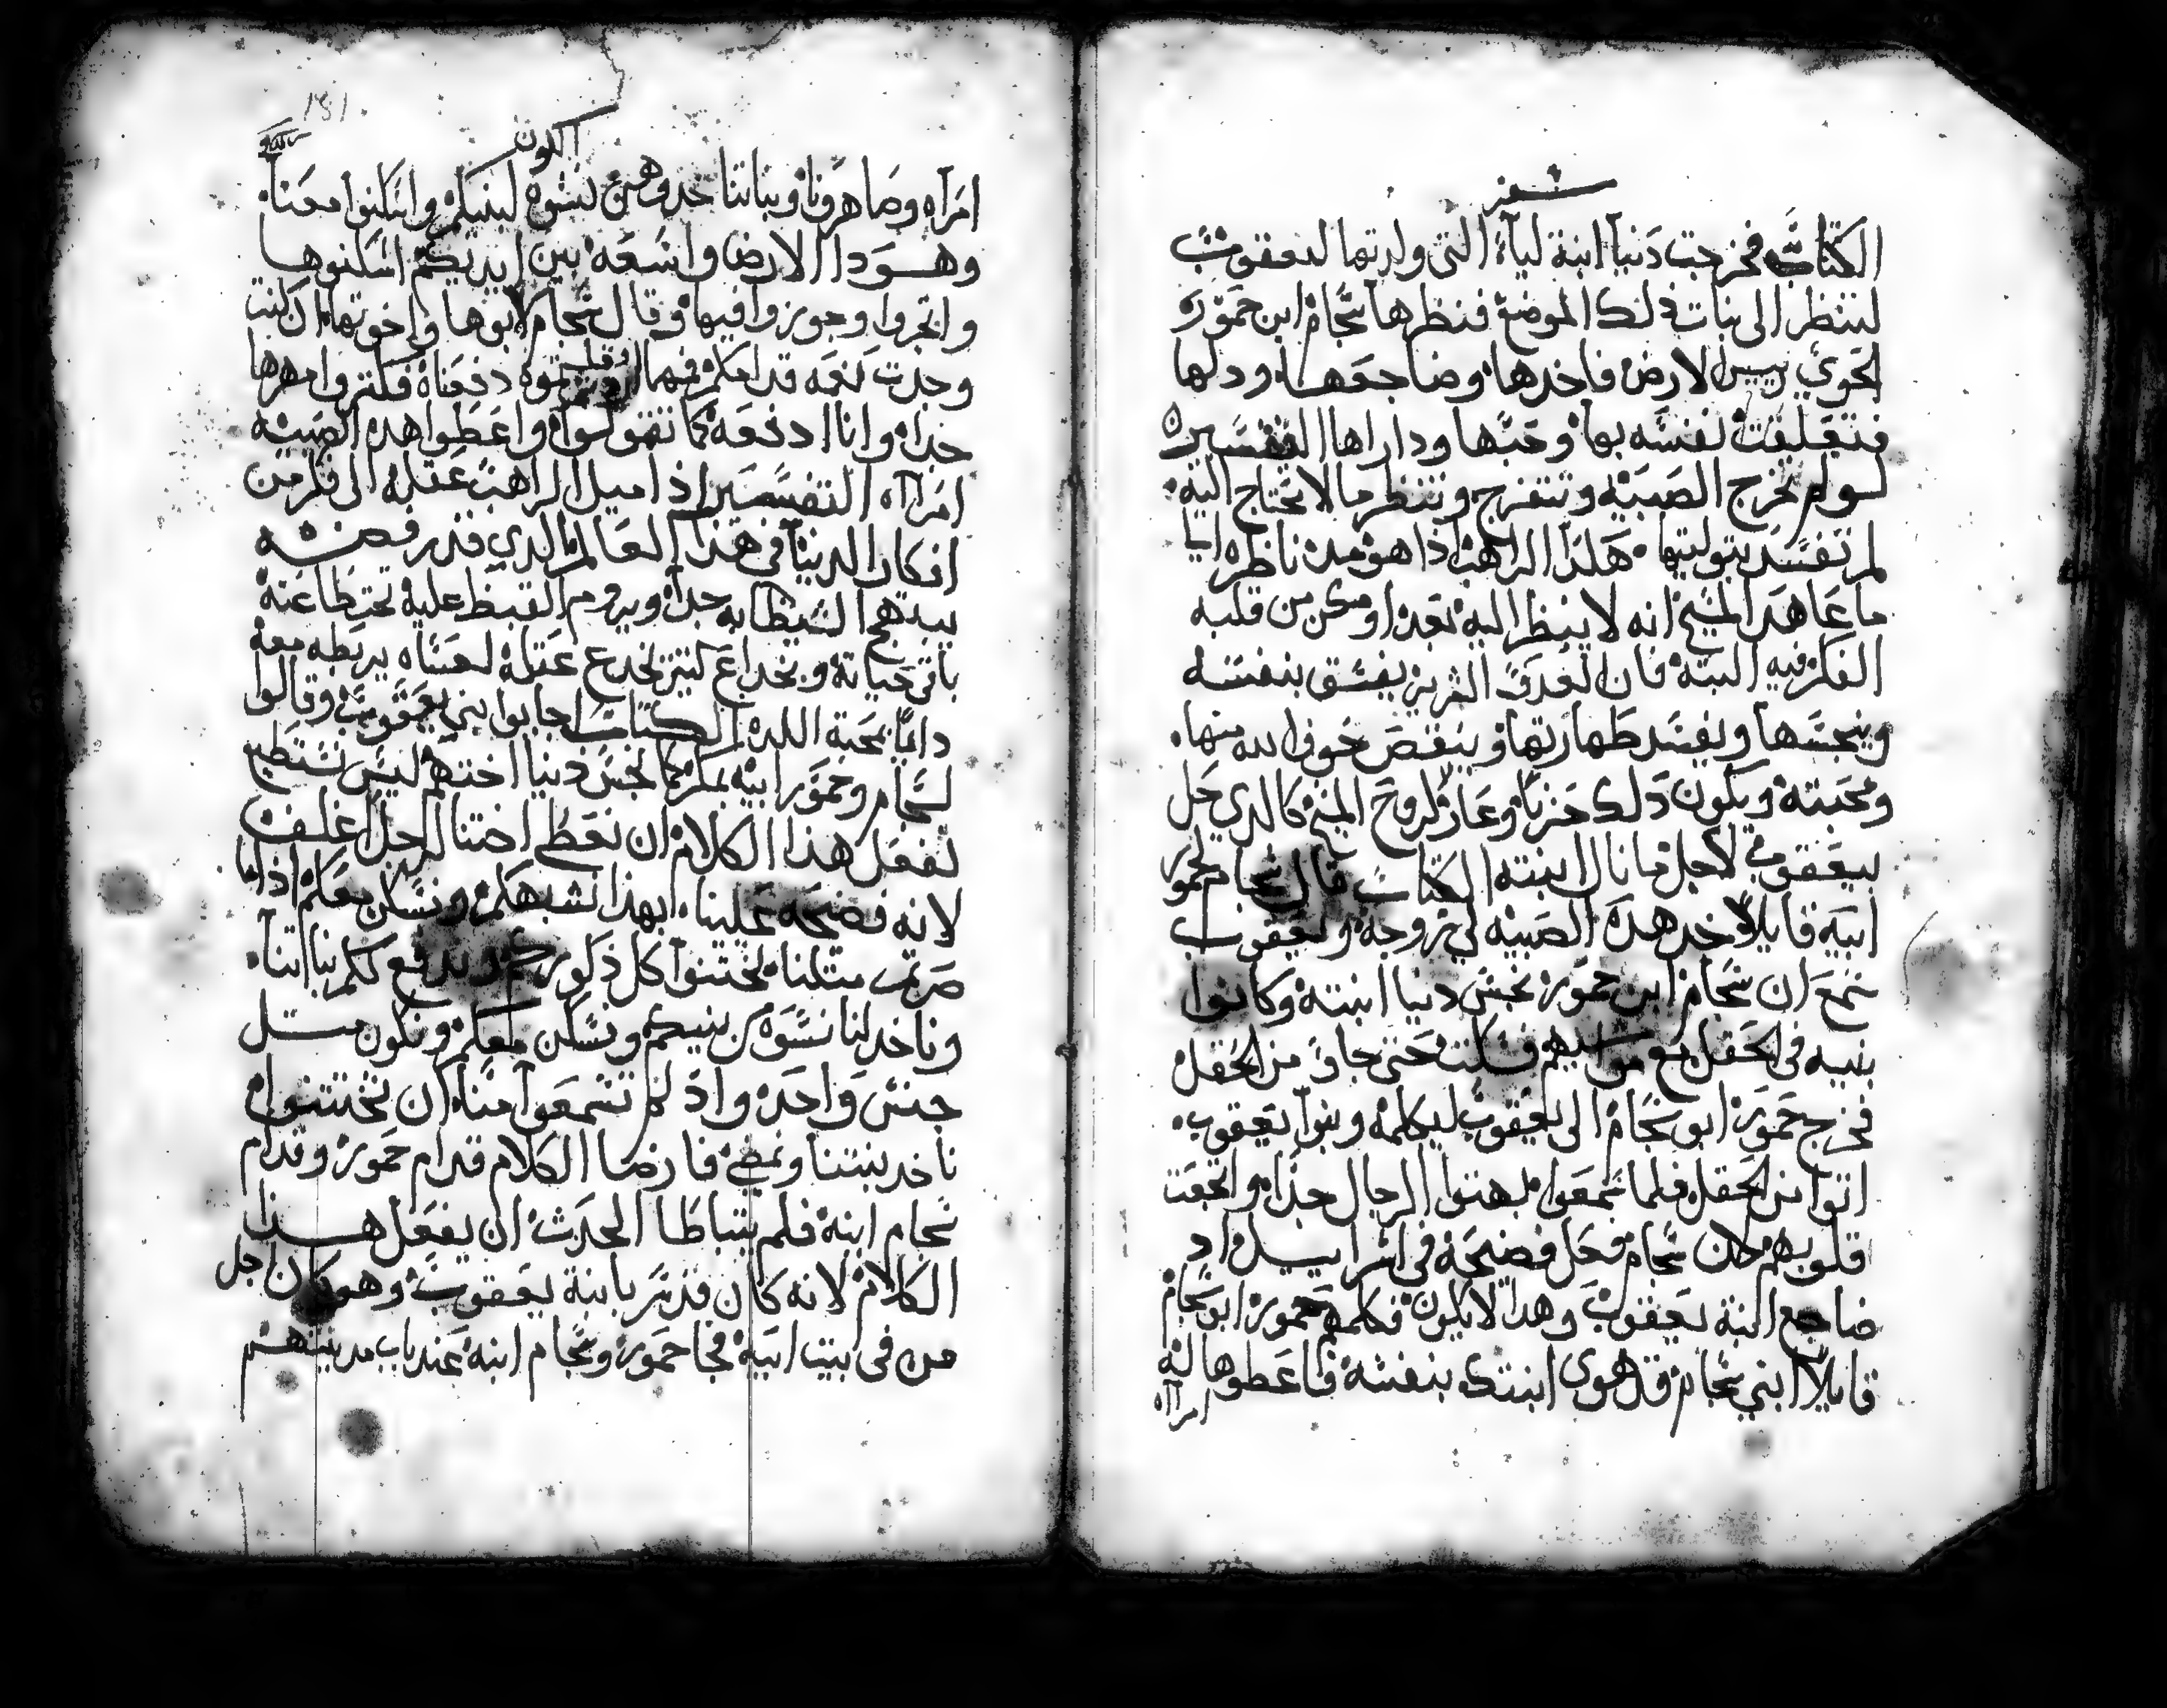 سفر
الكتاب فخرجت دنيا ابنة لياء التى ولدتها ليعقوب
لتنظر الى بنات ذلك الموضع فنظرها شجام ابن حمور
الحوي رييس الارض فاخدها وضاجعها ودلها
فتعلقت نفسه بها وحبها وداراها التفسير
لو لم تخرج الصبيه وتتفرج وتنظر ما لا تحتاج اليه
لم تفسد بتوليتها هكذا الراهب اذا هو مد ناظره الى
ما عاهد المسيح انه لا ينظر اليه بعد او مكن من قلبه
الفكر فيه البته فان العدو الشرير يفسق بنفسه
وينجسها ويفسد طهارتها وينقص خوف الله منها
ومحبته ويكون ذلك حزنا وعار لروح المسيح كالدي حل
بيعقوب لاجل ما نال ابنته الكتاب قال شجام لحمور
ابيه قايلا خد هده الصبيه لي زوجة ويعقوب
سمع ان شجام ابن حمور نجس دنيا ابنته وكانوا
بنيه فى الحقل مع مواشيهم فسكت حتى جاو من الحقل
فخرج حمور ابو شجام الى يعقوب ليكلمه وبنوا يعقوب
اتوا من الحقل فلما سمعوا بهتوا الرجال جدا واتجعت
قلوبهم لان شجام فعل فضيحة فى اسراييل واد
ضاجع ابنة يعقوب وهدا لا يكون فكلمهم حمور ابو شجام
قايلا ابني شجام قد هوى ابنتك بنفسه فاعطوها له
امرااه
181
الكون
امرآه وصاهرونا وبناتنا خدوهن نسوه لبنيكم واسكنوا معنا
وهودا الارض واسعه بين ايديكم اسكنوها
واتجروا وجوزوا فيها وقال شجام لابوها واخوتها ان كنت
وجدت نعمه قدامكم فمهما دفعناه فكتروا مهرها
جدا وانا ادفعه كما تقولوا واعطوا هده الصبيه
امرااه التفسير اذ اميل الراهب عقله الى فكر من
افكار الدنيا فى هذا العالم الدي قد رفضه
يبتهج الشيطان به جدا ويروم القبض عليه تحت طاعته
باقي حياته وبخداع كتير تخدع عقله لعساه يربطه معه
دايما بمحبة اللده الكتاب اجابوا بني يعقوب وقالوا
لشجام وحمور ابيه بمكر كما نجس دنيا اختهم ليس نستطيع
نفعل هذا الكلام ان نعطى اختنا لرجل اغلف
لانه فضيحه علينا بهذا نشبهكم ونسكن معكم اذا ما
صرتم متلنا تختنوا كل ذكوركم ندفع لكم بناتنا
وناخد لنا نسوه من بنيكم ونسكن معكم ونكون متل
جنس واحده واذ لم تسمعوا منا ان تختتنوا
ناخد بنتنا ونمضي فارضا الكلام قدام حمور وقدام
شجام ابنه فلم يتباطا الحدث ان يفعل هذا
الكلام لانه كان قد سر بابنة يعقوب وهو كان اجل
من فى بيت ابيه فجا حمور وشجام ابنه عند باب مدينتهم